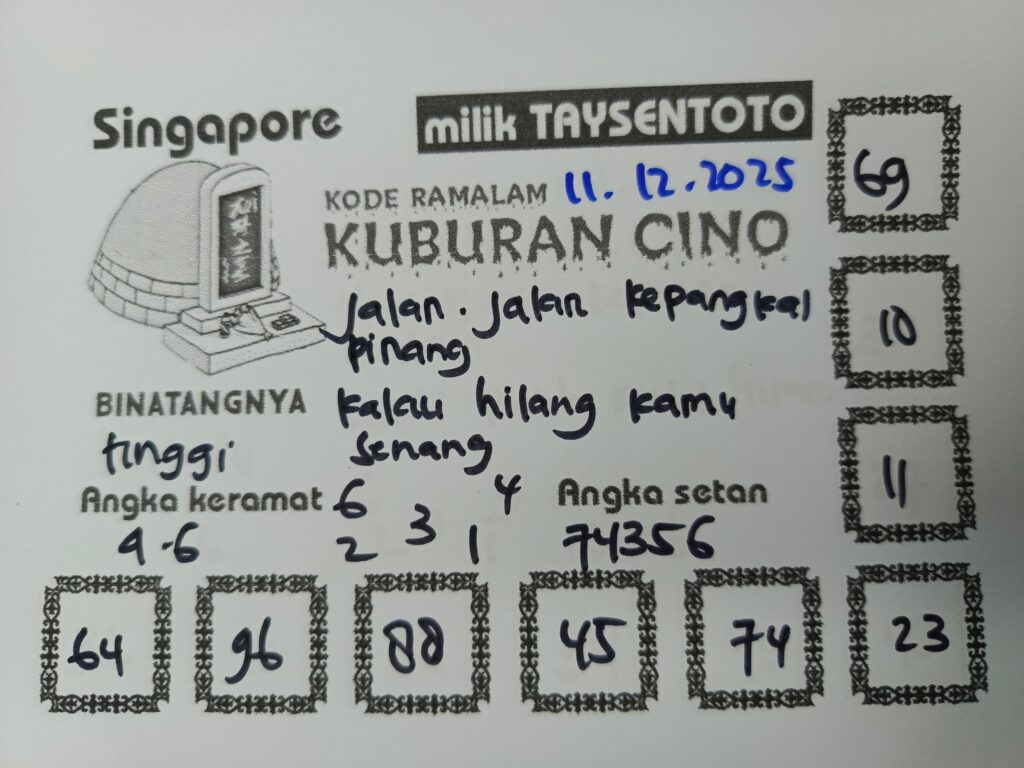 Singapore
milik TAYSENTOTO
KODE RAMALAM 11.12.2025
KUBURAN CINO
Jalan. Jalan kepangkal
pinang
BINATANGNYA kalau hilang kamu
tinggi senang
Angka keramat 6 4 Angka setan
4-6 2 3 1 74356
69
10
11
64 96 88 45 74 23